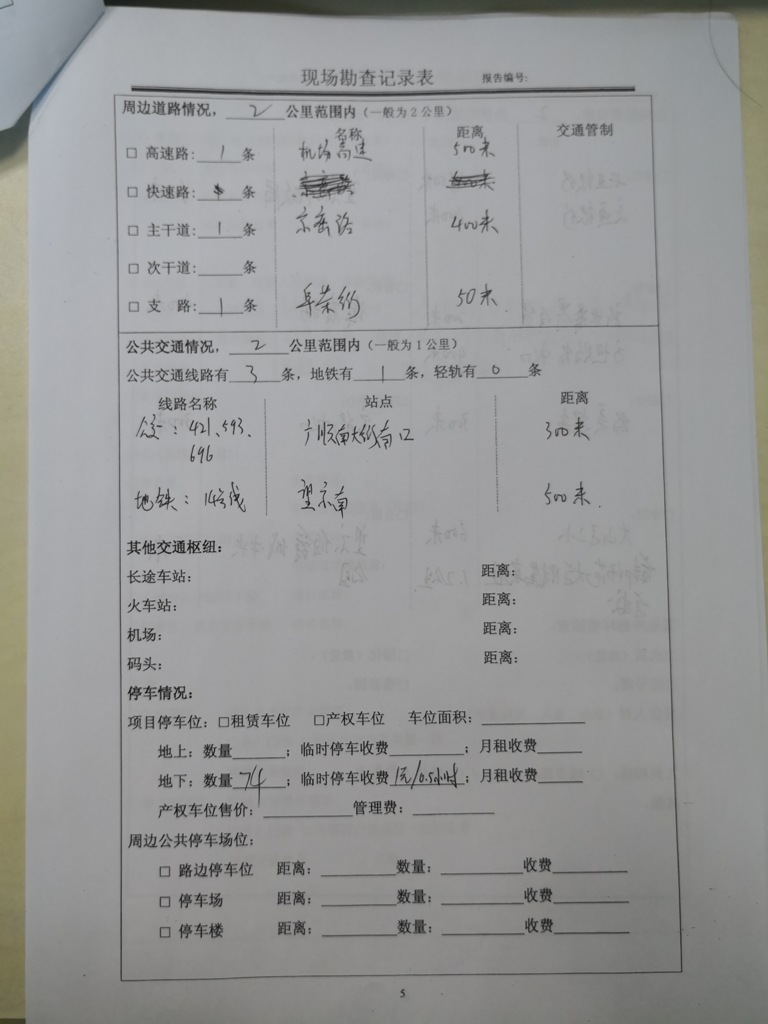 现场勘查记录表 报告编号:
周边道路情况，2公里范围内（一般为2公里）
名称 距离 交通管制
□ 高速路:1条 机场高速 500米
□ 快速路:条
□ 主干道:1条 京密路 400米
□ 次干道:____条
□ 支 路:1条 阜荣街 50米
公共交通情况，2公里范围内（一般为1公里）
公共交通线路有3条，地铁有1条，轻轨有0条
线路名称 站点 距离
公交：421、593、 广顺南大街南口 300米
696
地铁：14号线 望京南 500米
其他交通枢纽:
长途车站: 距离:
火车站: 距离:
机场: 距离:
码头: 距离:
停车情况:
项目停车位: □租赁车位 □产权车位 车位面积:____
地上: 数量____；临时停车收费____；月租收费____
地下: 数量74；临时停车收费1元/0.5小时；月租收费____
产权车位售价:____管理费:____
周边公共停车场位:
□ 路边停车位 距离:____数量:____收费____
□ 停车场 距离:____数量:____收费____
□ 停车楼 距离:____数量:____收费____
5